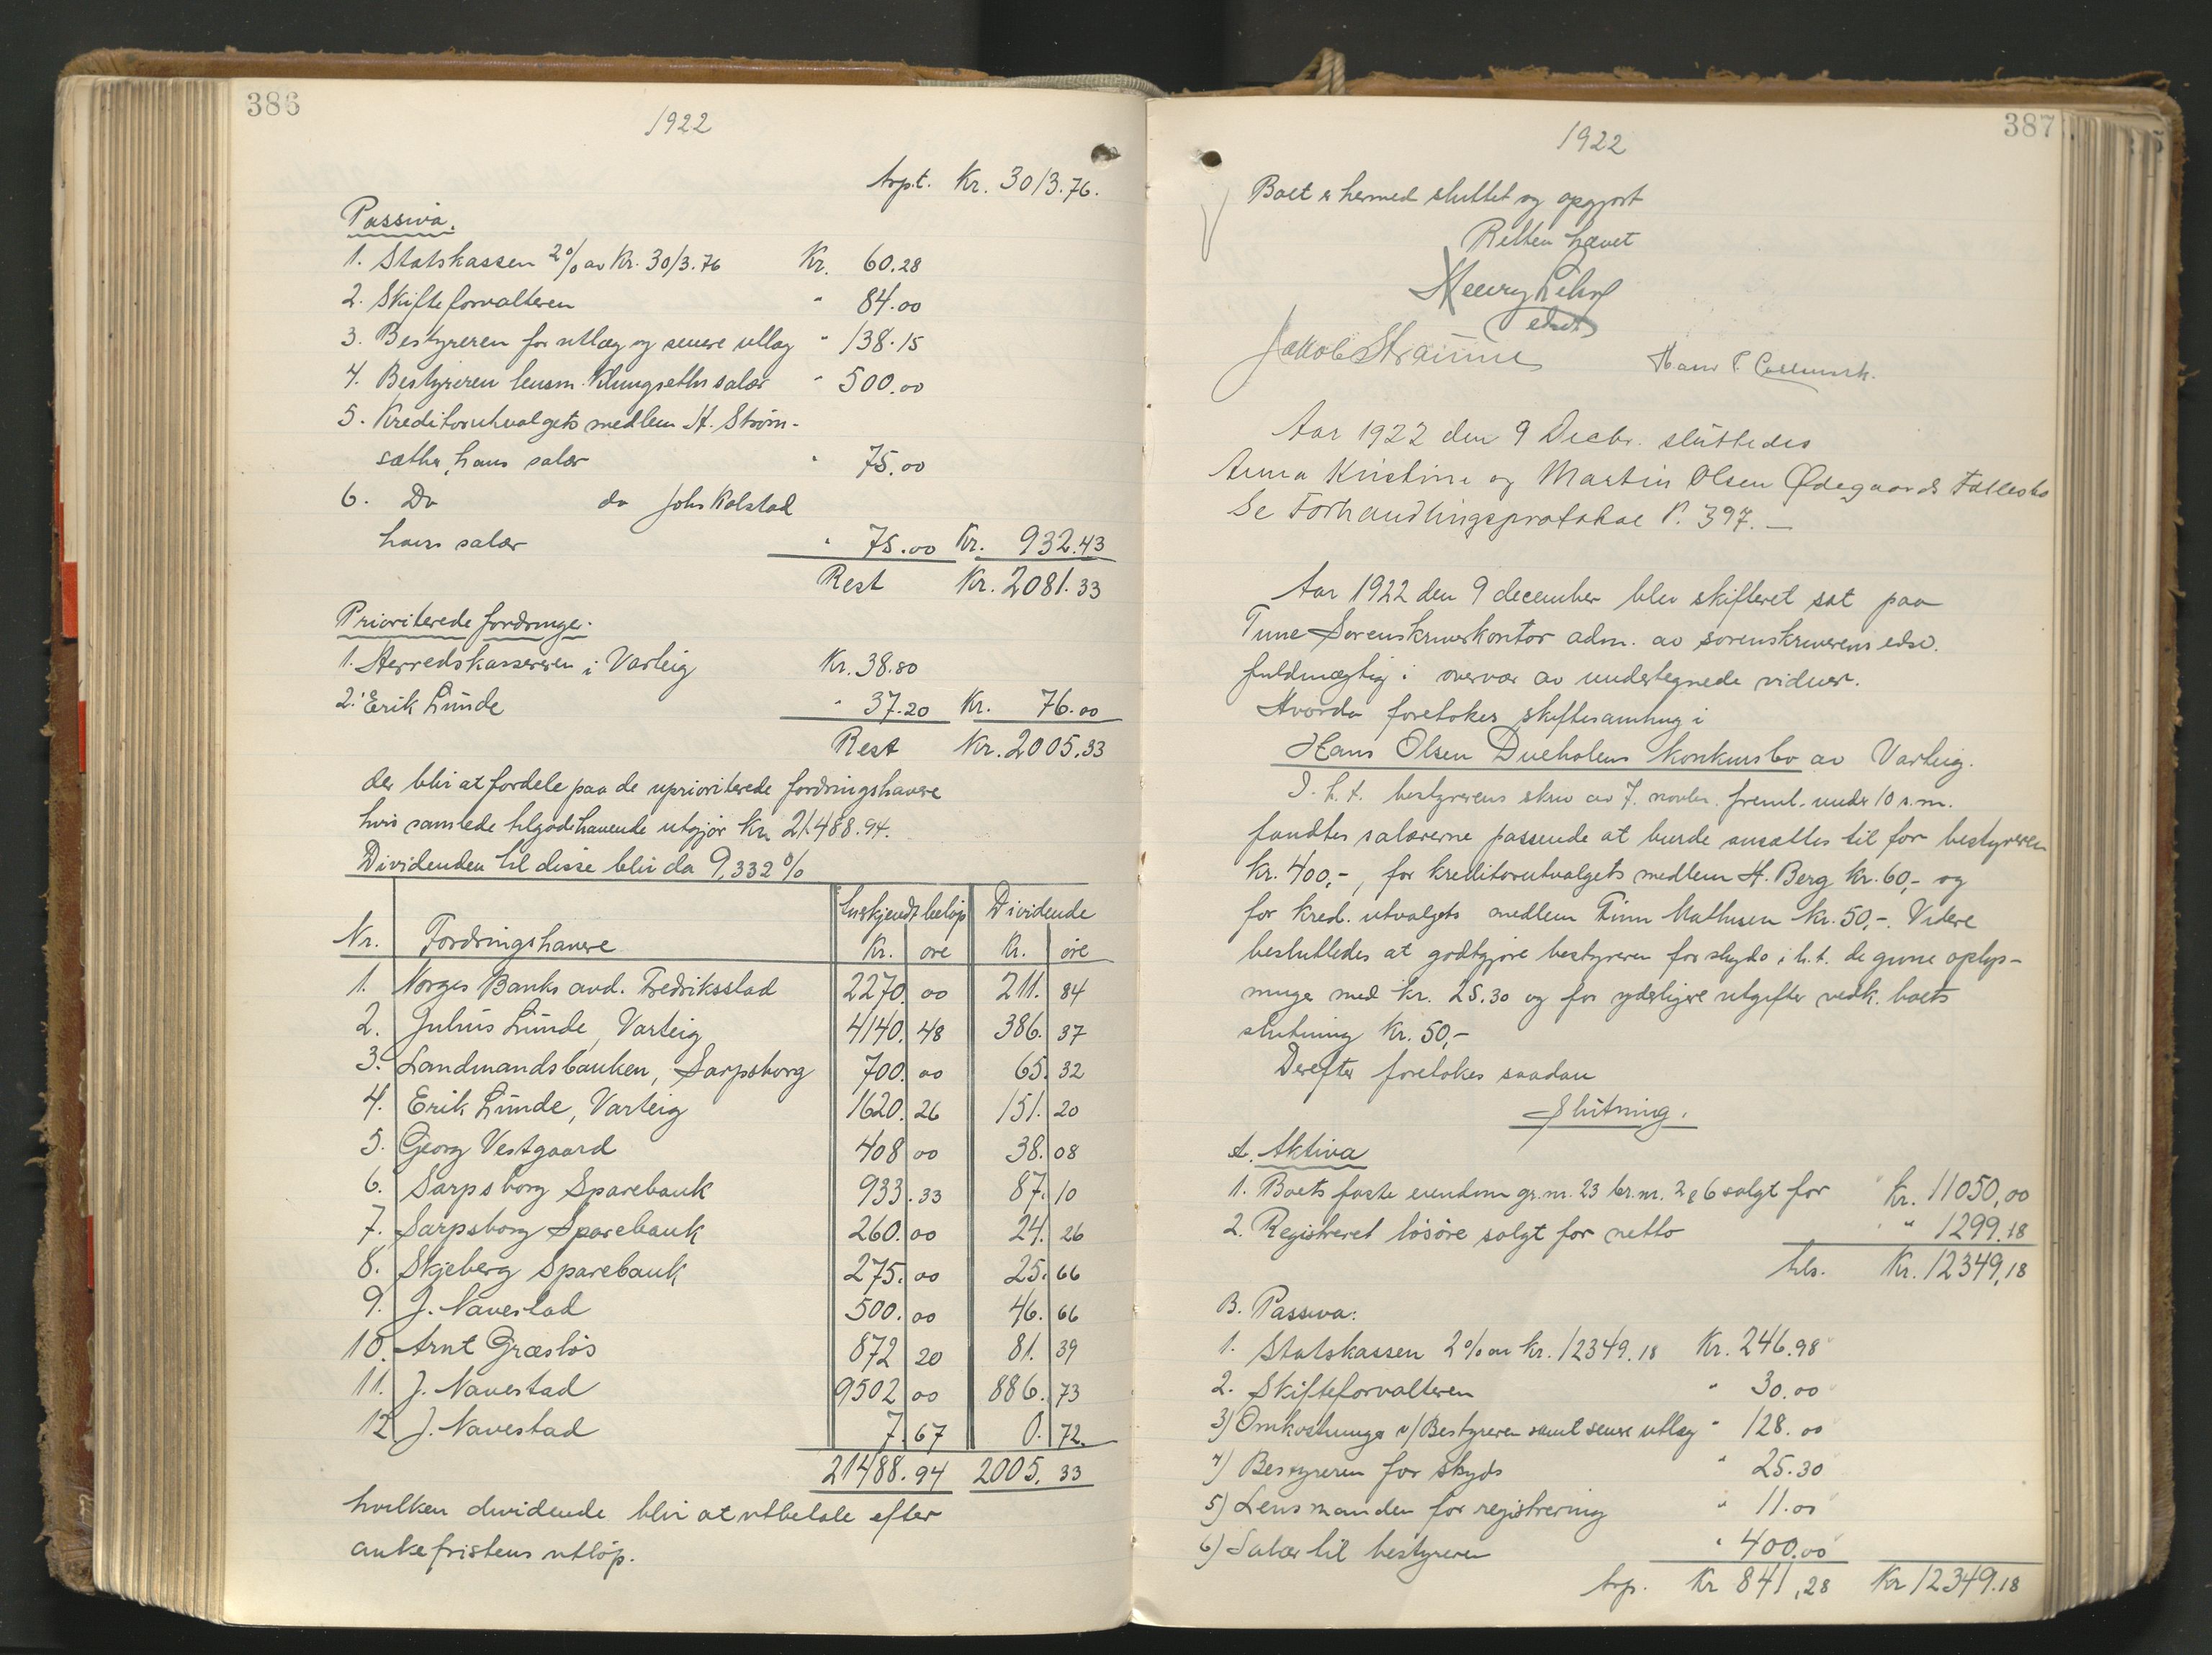 386
1922
trpt. Kr. 3013.76.
Passiva.
1. Statskassen 2% av Kr. 3013.76 Kr. 60.28
2. Skifteforvalteren " 84.00
3. Bestyreren for utlæg og senere utlæg " 138.15
4. Bestyreren lensm. Klungseths salær " 500.00
5. Kreditorutvalgets medlem H. Strøm-
sæther, hans salær " 75.00
6. Do do Johs Kolstad
hans salær " 75.00 Kr. 932.43
Rest Kr. 2081.33
Prioriterede fordringer.
1. Herredskassereren i Varteig Kr. 38.80
2. Erik Lunde " 37.20 Kr. 76.00
Rest Kr. 2005.33
der blir at fordele paa de uprioriterede fordringshavere
hvis samlede tilgodehavende utgjør Kr. 21488.94.
Dividenden til disse blir da 9,332%
Nr. Fordringshavere Anerkjendt beløp Dividende
Kr. øre Kr. øre
1. Norges Banks avd. Fredriksstad 2270. 00 211. 84
2. Julius Lunde, Varteig 4140. 48 386. 37
3. Landmandsbanken, Sarpsborg 700. 00 65. 32
4. Erik Lunde, Varteig 1620. 26 151. 20
5. Georg Vestgaard 408 00 38. 08
6. Sarpsborg Sparebank 933. 33 87. 10
7. Sarpsborg Sparebank 260. 00 24. 26
8. Skjeberg Sparebank 275. 00 25. 66
9. J. Navestad 500. 00 46. 66
10. Arnt Græsløs 872 20 81. 39
11. J. Navestad 9502 00 886. 73
12. J. Navestad 7. 67 0. 72.
21488.94 2005. 33
hvilken dividende blir at utbetale efter
ankefristens utløp.
387
1922
Boet er hermed sluttet og opgjort
Retten hævet
edsv
Jakob Straume Hans P.
Aar 1922 den 9 Decbr. sluttedes
Anna Kristine og Martin Olsen Ødegaards Fællesbo
Se Forhandlingsprotokol P. 397. —
Aar 1922 den 9 december blev skifteret sat paa
Tune Sorenskriverkontor adm. av sorenskriverens edsv.
fuldmægtig i overvær av undertegnede vidner.
Hvorda foretokes skiftesamling i
Hans Olsen Dueholens konkursbo av Varteig.
I h. t. bestyrerens skriv av 7. novbr. freml. under 10 s.m.
fandtes salærerne passende at burde ansættes til for bestyreren
kr. 400,-, for kreditorutvalgets medlem H. Berg kr. 60,- og
for kred. utvalgets medlem Finn Mathisen kr. 50,-. Videre
besluttedes at godtgjøre bestyreren for skyds i h.t. de givne oplys-
ninger med kr. 25.30 og for yderligere utgifter vedk. boets
slutning kr. 50,-
Derefter foretokes saadan
Slutning.
A. Aktiva
1. Boets faste eiendom gr.nr. 23 br.nr. 2 & 6 solgt for Kr. 11050,00
2. Registreret løsøre solgt for netto " 1299.18
tils. Kr. 12349,18
B. Passiva:
1. Statskassen 2% av kr. 12349.18 Kr. 246.98
2. Skifteforvalteren " 30.00
3) Omkostninger v/Bestyreren samt senere utlæg " 128.00
4) Bestyreren for skyds " 25.30
5) Lensmanden for registrering " 11.00
6) Salær til bestyreren " 400.00
trp. Kr 841,28 Kr 12349.18